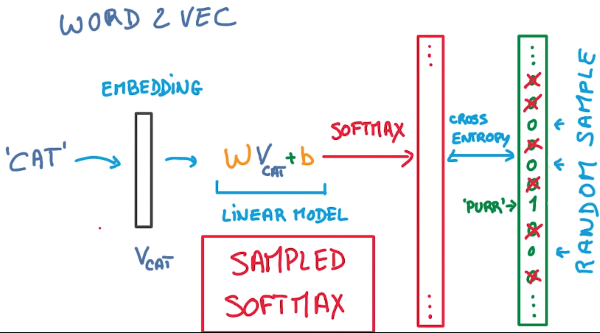 WORD 2 VEC
EMBEDDING
'CAT'
V CAT
W V CAT + b
LINEAR MODEL
SOFTMAX
SAMPLED
SOFTMAX
CROSS
ENTROPY
...
...
...
0
0
0
0
0
0
'PURR' 1
0
0
0
...
RANDOM SAMPLE